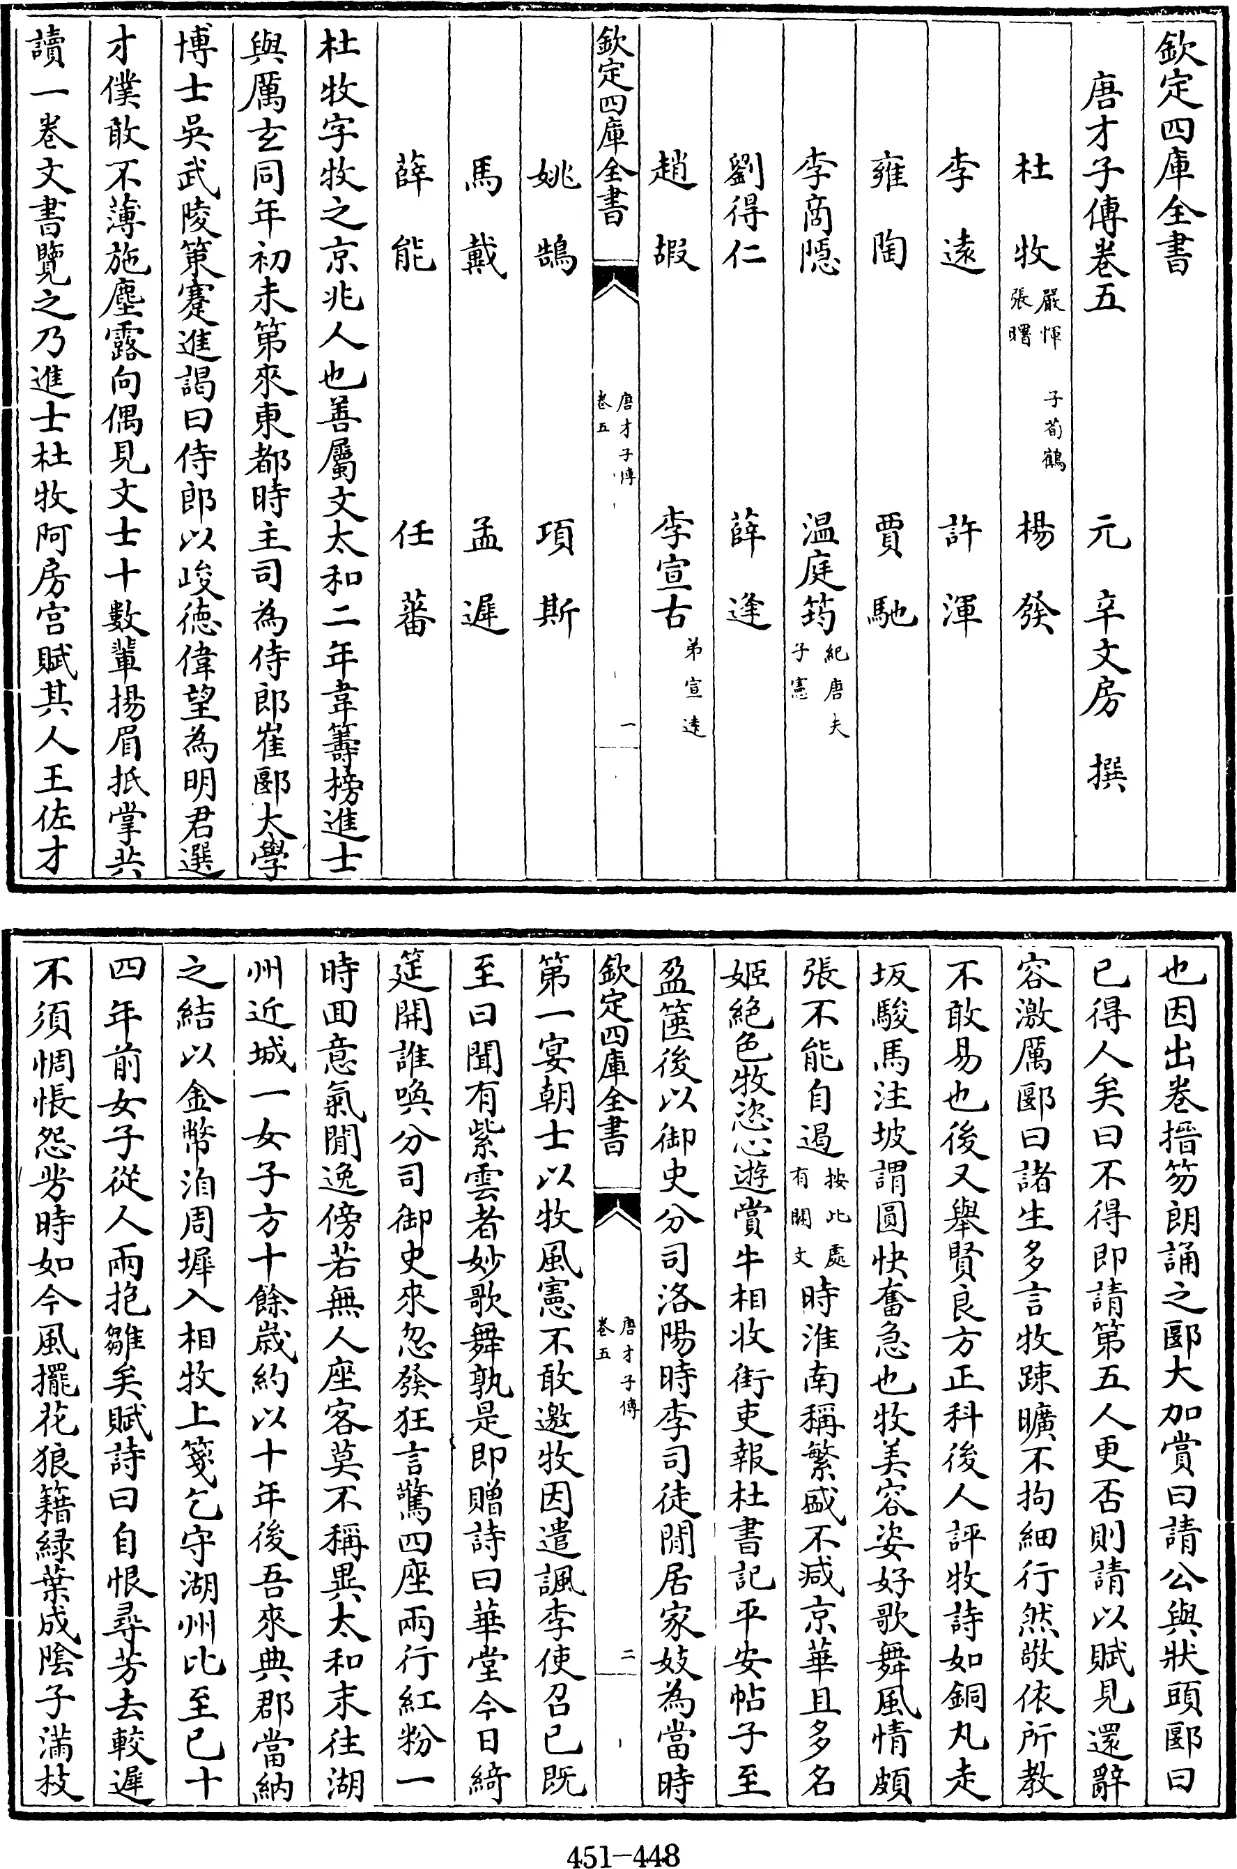 欽定四庫全書
唐才子傳卷五 元 辛文房 撰
杜牧 嚴惲 張曙 子荀鶴 楊發
李遠 許渾
雍陶 賈馳
李商隱 温庭筠 紀唐夫 子憲
劉得仁 薛逢
趙嘏 李宣古 弟宣遠
欽定四庫全書 唐才子傳 卷五 一
姚鵠 項斯
馬戴 孟遲
薛能 任蕃
杜牧字牧之京兆人也善屬文太和二年韋籌榜進士
與厲玄同年初未第來東都時主司為侍郎崔郾太學
博士吳武陵策蹇進謁曰侍郎以峻德偉望為明君選
才僕敢不薄施塵露向偶見文士十數輩揚眉抵掌共
讀一卷文書覽之乃進士杜牧阿房宫賦其人王佐才
也因出卷搢笏朗誦之郾大加賞曰請公與狀頭郾曰
已得人矣曰不得即請第五人更否則請以賦見還辭
容激厲郾曰諸生多言牧踈曠不拘細行然敬依所教
不敢易也後又舉賢良方正科後人評牧詩如銅丸走
坂駿馬注坡謂圓快奮急也牧美容姿好歌舞風情頗
張不能自遏 按此處 有闕文 時淮南稱繁盛不減京華且多名
姬絶色牧恣心遊賞牛相收街吏報杜書記平安帖子至
盈篋後以御史分司洛陽時李司徒閒居家妓為當時
欽定四庫全書 唐才子傳 卷五 二
第一宴朝士以牧風憲不敢邀牧因遣諷李使召已既
至曰聞有紫雲者妙歌舞孰是即贈詩曰華堂今日綺
筵開誰喚分司御史來忽發狂言驚四座兩行紅粉一
時囬意氣閒逸傍若無人座客莫不稱異太和末往湖
州近城一女子方十餘歲約以十年後吾來典郡當納
之結以金幣洎周墀入相牧上箋乞守湖州比至已十
四年前女子從人兩抱雛矣賦詩曰自恨尋芳去較遲
不須惆悵怨芳時如今風擺花狼籍緑葉成陰子滿枝
451-448